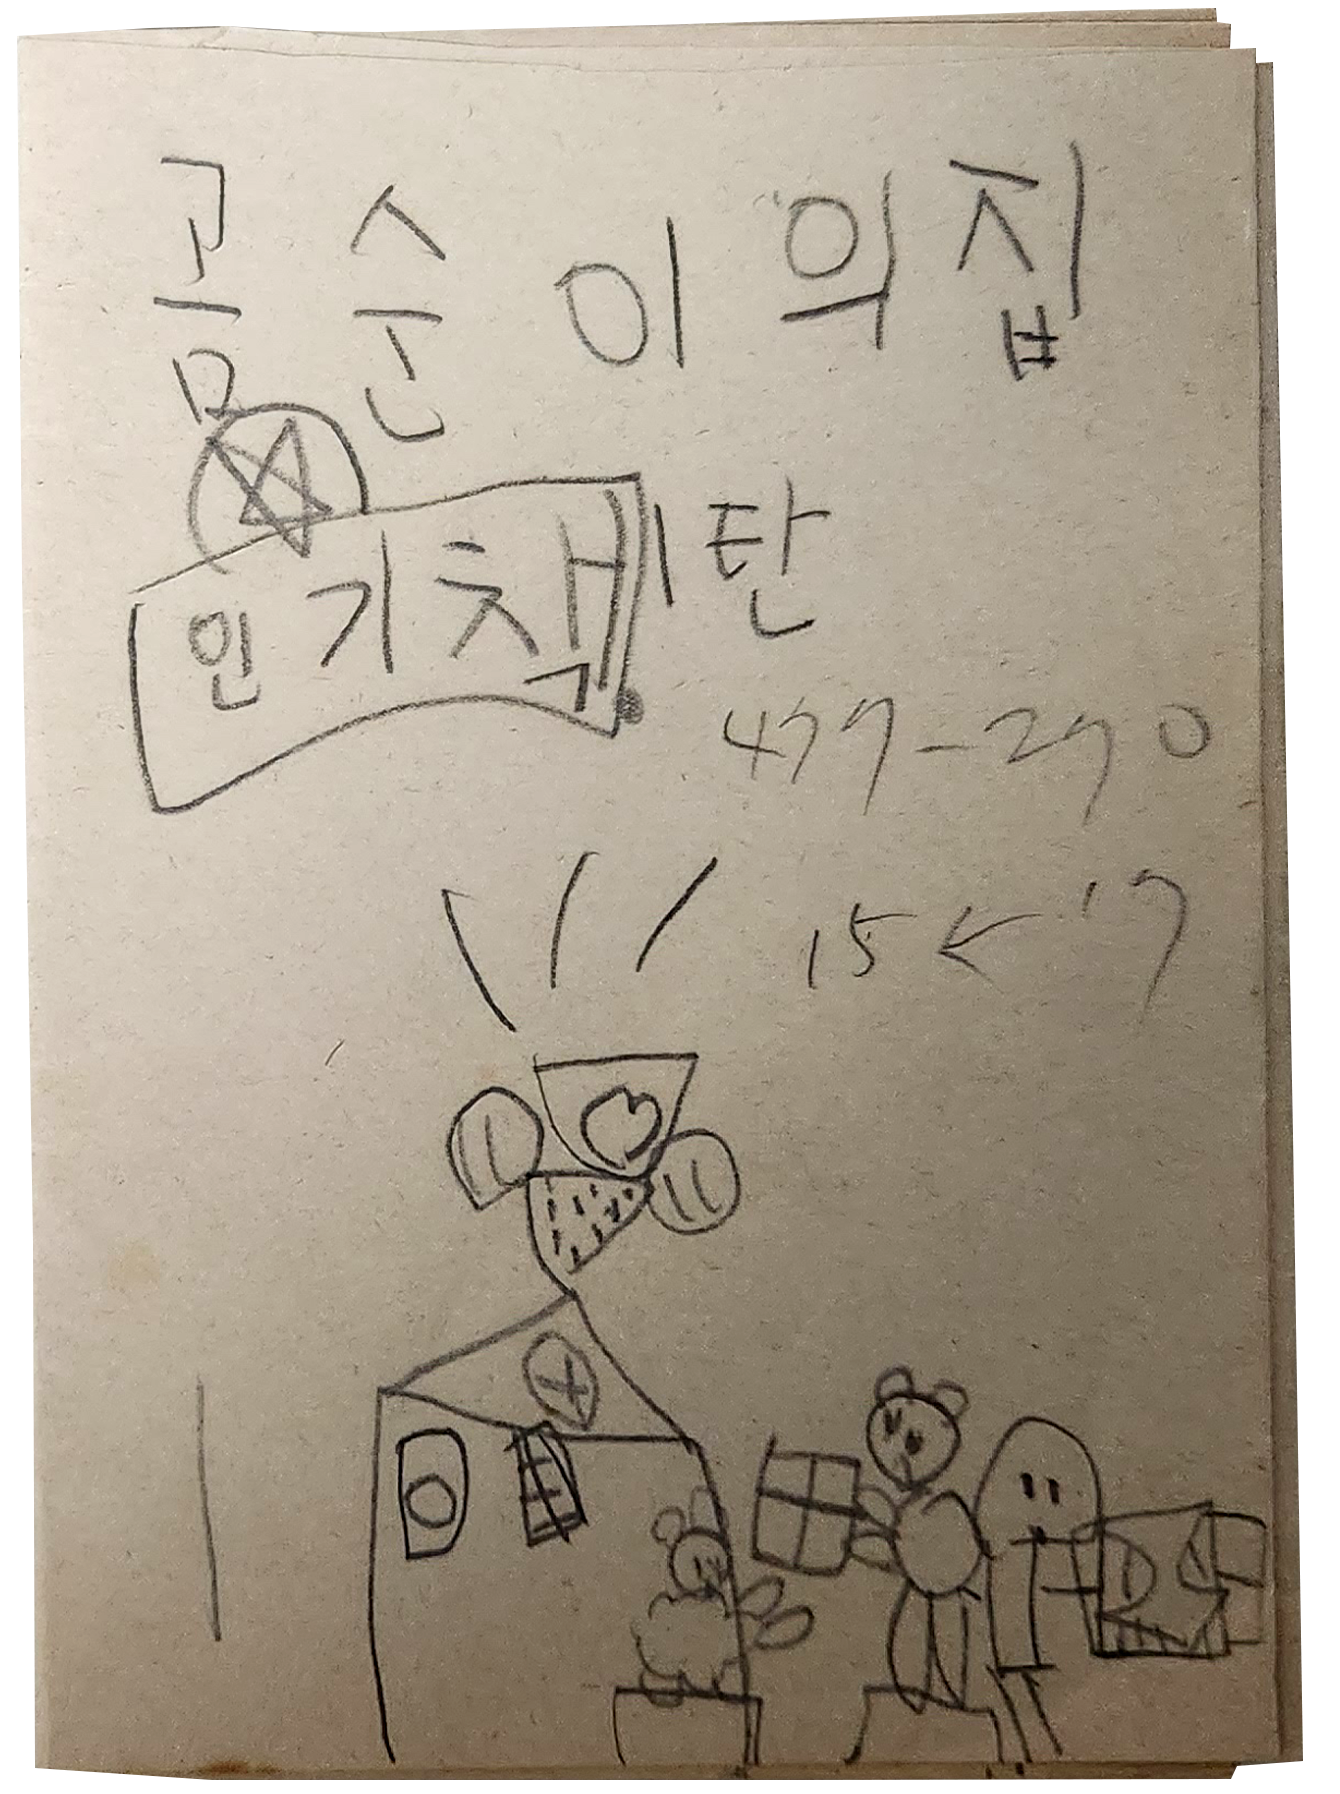 곰순이의집
인기책 1탄
477-270
15←17